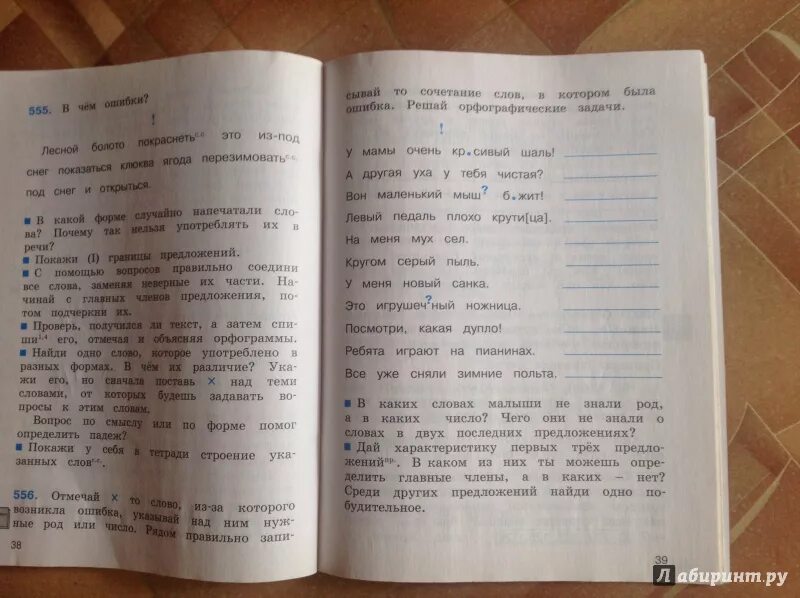 555. В чём ошибки?
!
Лесной болото покраснетьс.с. это из-под
снег показаться клюква ягода перезимоватьс.с.
под снег и открыться.
■ В какой форме случайно напечатали сло-
ва? Почему так нельзя употреблять их в
речи?
■ Покажи (I) границы предложений.
■ С помощью вопросов правильно соедини
все слова, заменяя неверные их части. На-
чинай с главных членов предложения, по-
том подчеркни их.
■ Проверь, получился ли текст, а затем спи-
ши1,4 его, отмечая и объясняя орфограммы.
■ Найди одно слово, которое употреблено в
разных формах. В чём их различие? Ука-
жи его, но сначала поставь × над теми
словами, от которых будешь задавать во-
просы к этим словам.
Вопрос по смыслу или по форме помог
определить падеж?
■ Покажи у себя в тетради строение ука-
занных словс.с.
556. Отмечай × то слово, из-за которого
возникла ошибка, указывай над ним нуж-
ные род или число. Рядом правильно запи-
38
сывай то сочетание слов, в котором была
ошибка. Решай орфографические задачи.
!
У мамы очень кр.сивый шаль!
А другая уха у тебя чистая?
Вон маленький мыш? б.жит!
Левый педаль плохо крути[ца].
На меня мух сел.
Кругом серый пыль.
У меня новый санка.
Это игрушеч?ный ножница.
Посмотри, какая дупло!
Ребята играют на пианинах.
Все уже сняли зимние польта.
■ В каких словах малыши не знали род,
а в каких число? Чего они не знали о
словах в двух последних предложениях?
■ Дай характеристику первых трёх предло-
женийпр.. В каком из них ты можешь опре-
делить главные члены, а в каких – нет?
Среди других предложений найди одно по-
будительное.
39
Лабиринт.ру